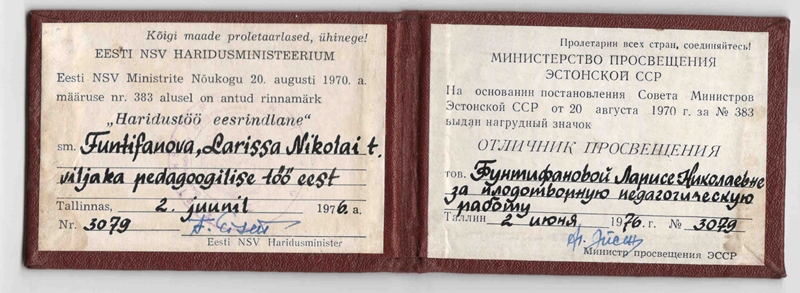 Kõigi maade proletaarlased, ühinege!
EESTI NSV HARIDUSMINISTEERIUM
Eesti NSV Ministrite Nõukogu 20. augusti 1970. a.
määruse nr. 383 alusel on antud rinnamärk
„Haridustöö eesrindlane“
sm. Funtifanova, Larissa Nikolai t.
viljaka pedagoogilise töö eest
Tallinnas, 2. juunil 1976. a.
Nr. 3079
Eesti NSV Haridusminister
Пролетарии всех стран, соединяйтесь!
МИНИСТЕРСТВО ПРОСВЕЩЕНИЯ
ЭСТОНСКОЙ ССР
На основании постановления Совета Министров
Эстонской ССР от 20 августа 1970 г. за № 383
выдан нагрудный значок
ОТЛИЧНИК ПРОСВЕЩЕНИЯ
тов. Фунтифановой Ларисе Николаевне
за плодотворную педагогическую
работу
Таллин 2 июня 1976. г. № 3079
Министр просвещения ЭССР